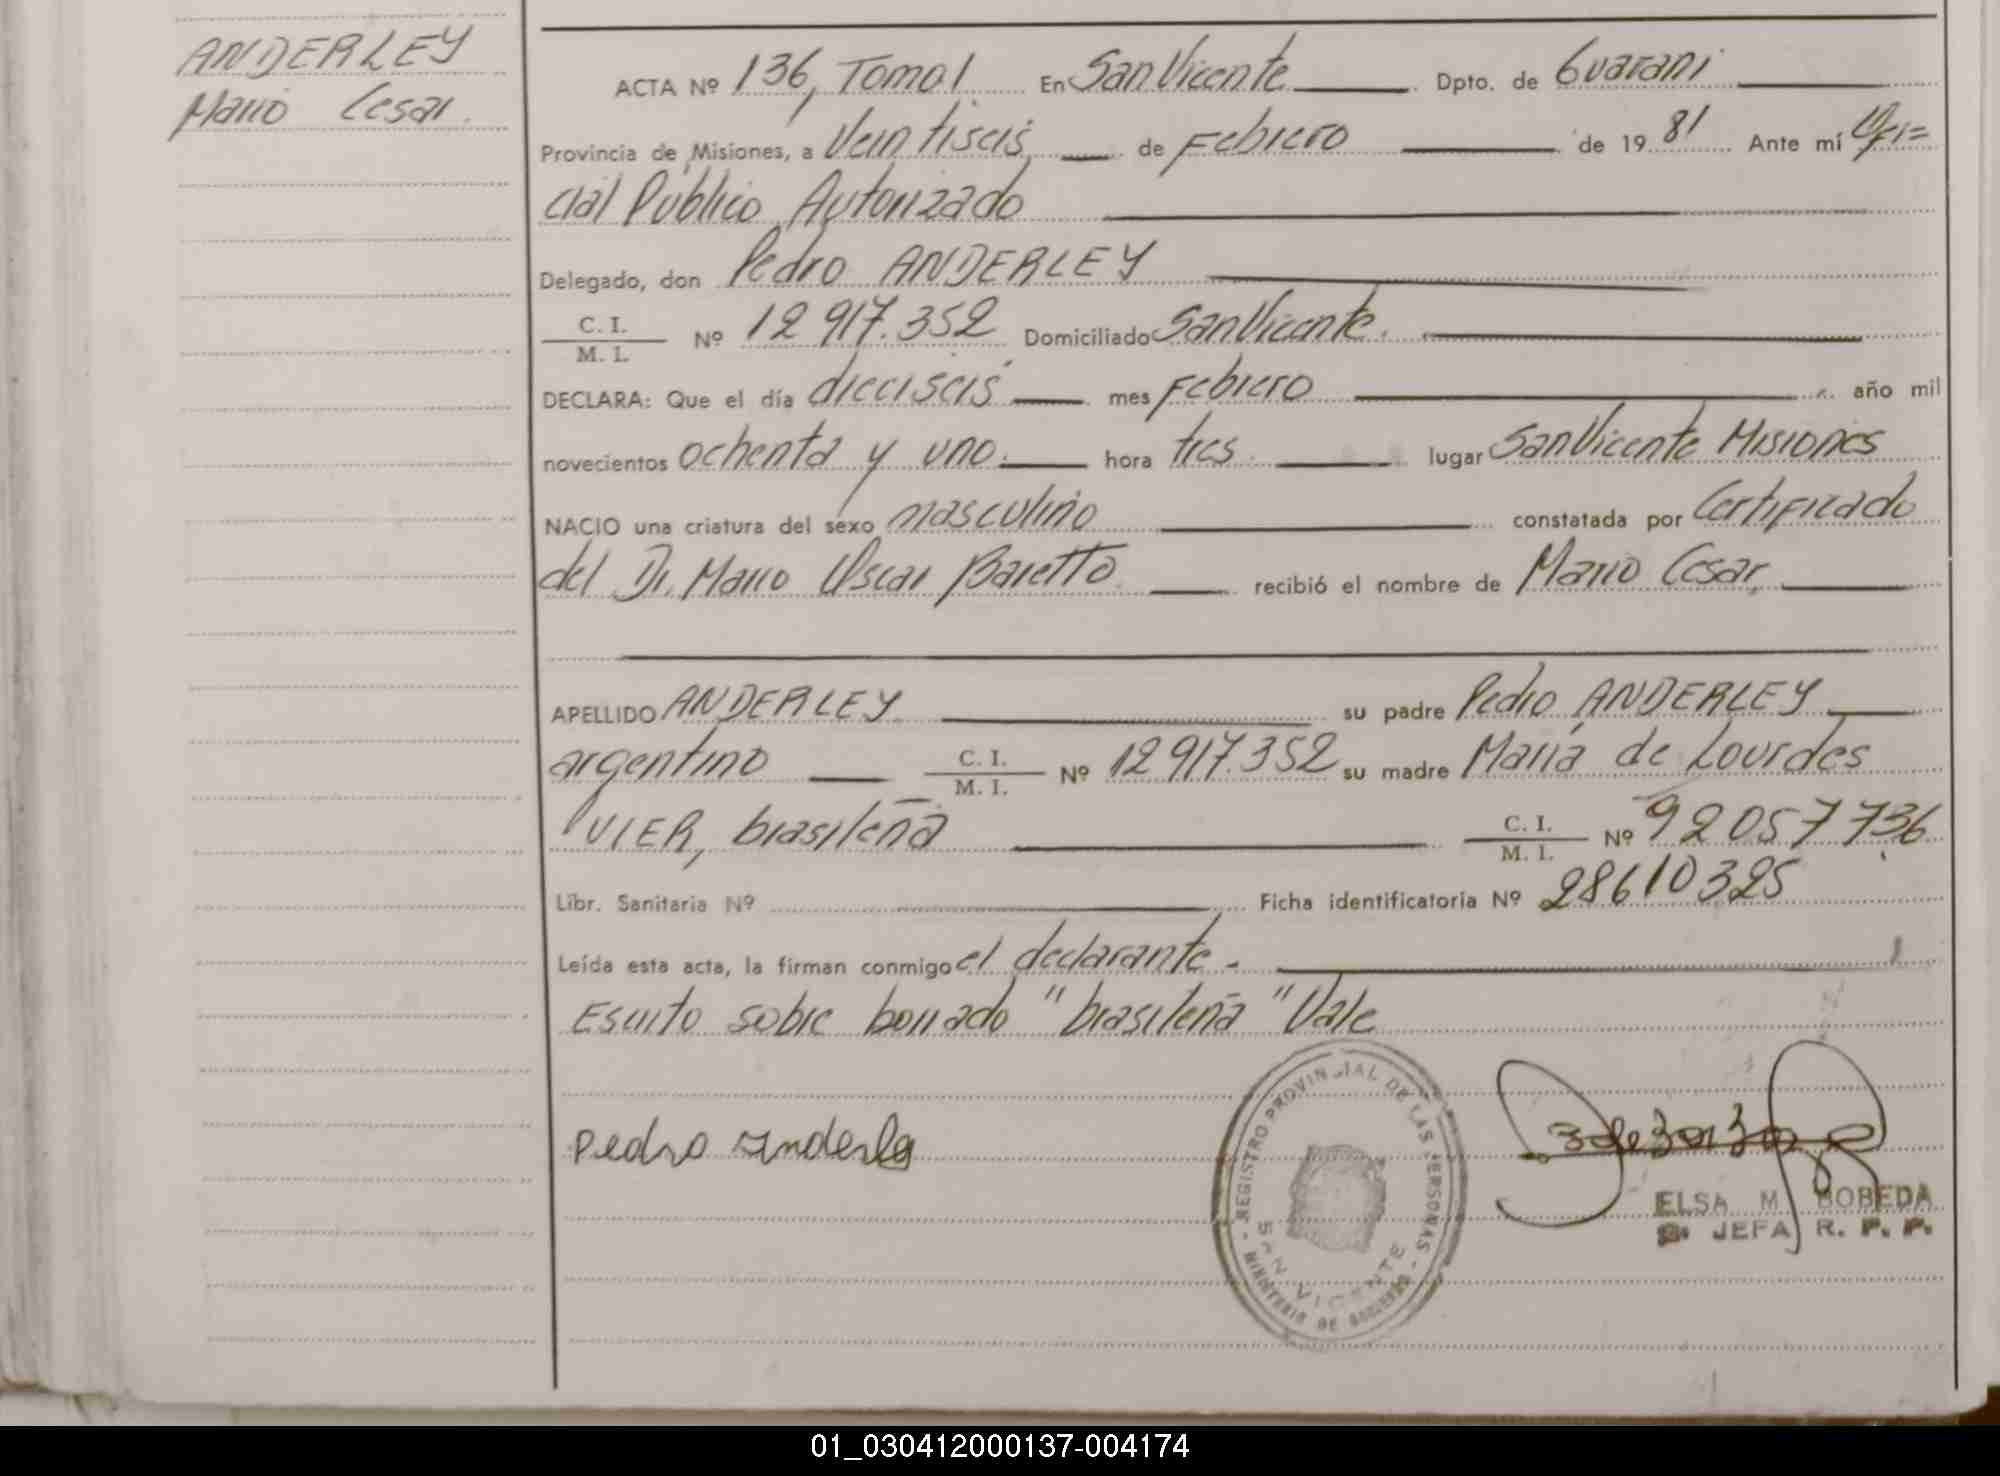 ANDERLEY
Mario Cesar.
ACTA Nº 136, Tomo I. En San Vicente Dpto. de Guarani
Provincia de Misiones, a Veintiseis de Febrero de 19 81 Ante mí Ofi=
cial Público Autorizado
Delegado, don Pedro ANDERLEY
C. I.
M. I. Nº 12 917.352 Domiciliado San Vicente.
DECLARA: Que el día dieciseis mes Febrero año mil
novecientos ochenta y uno. hora tres. lugar San Vicente Misiones
NACIO una criatura del sexo masculino constatada por Certificado
del Dr. Mario Oscar Baretto. recibió el nombre de Mario Cesar,
APELLIDO ANDERLEY su padre Pedro ANDERLEY
argentino C. I.
M. I. Nº 12 917.352 su madre María de Lourdes
VIER, brasileña C. I.
M. I. Nº 92057736
Libr. Sanitaria Nº Ficha identificatoria Nº 28610325
Leída esta acta, la firman conmigo el declarante.-
Escrito sobre borrado "brasileña" Vale
Pedro Anderle
REGISTRO PROVINCIAL DE LAS PERSONAS - MINISTERIO DE GOBIERNO -
SAN VICENTE
ELSA M BOBEDA
JEFA R. P. P.
01_030412000137-004174